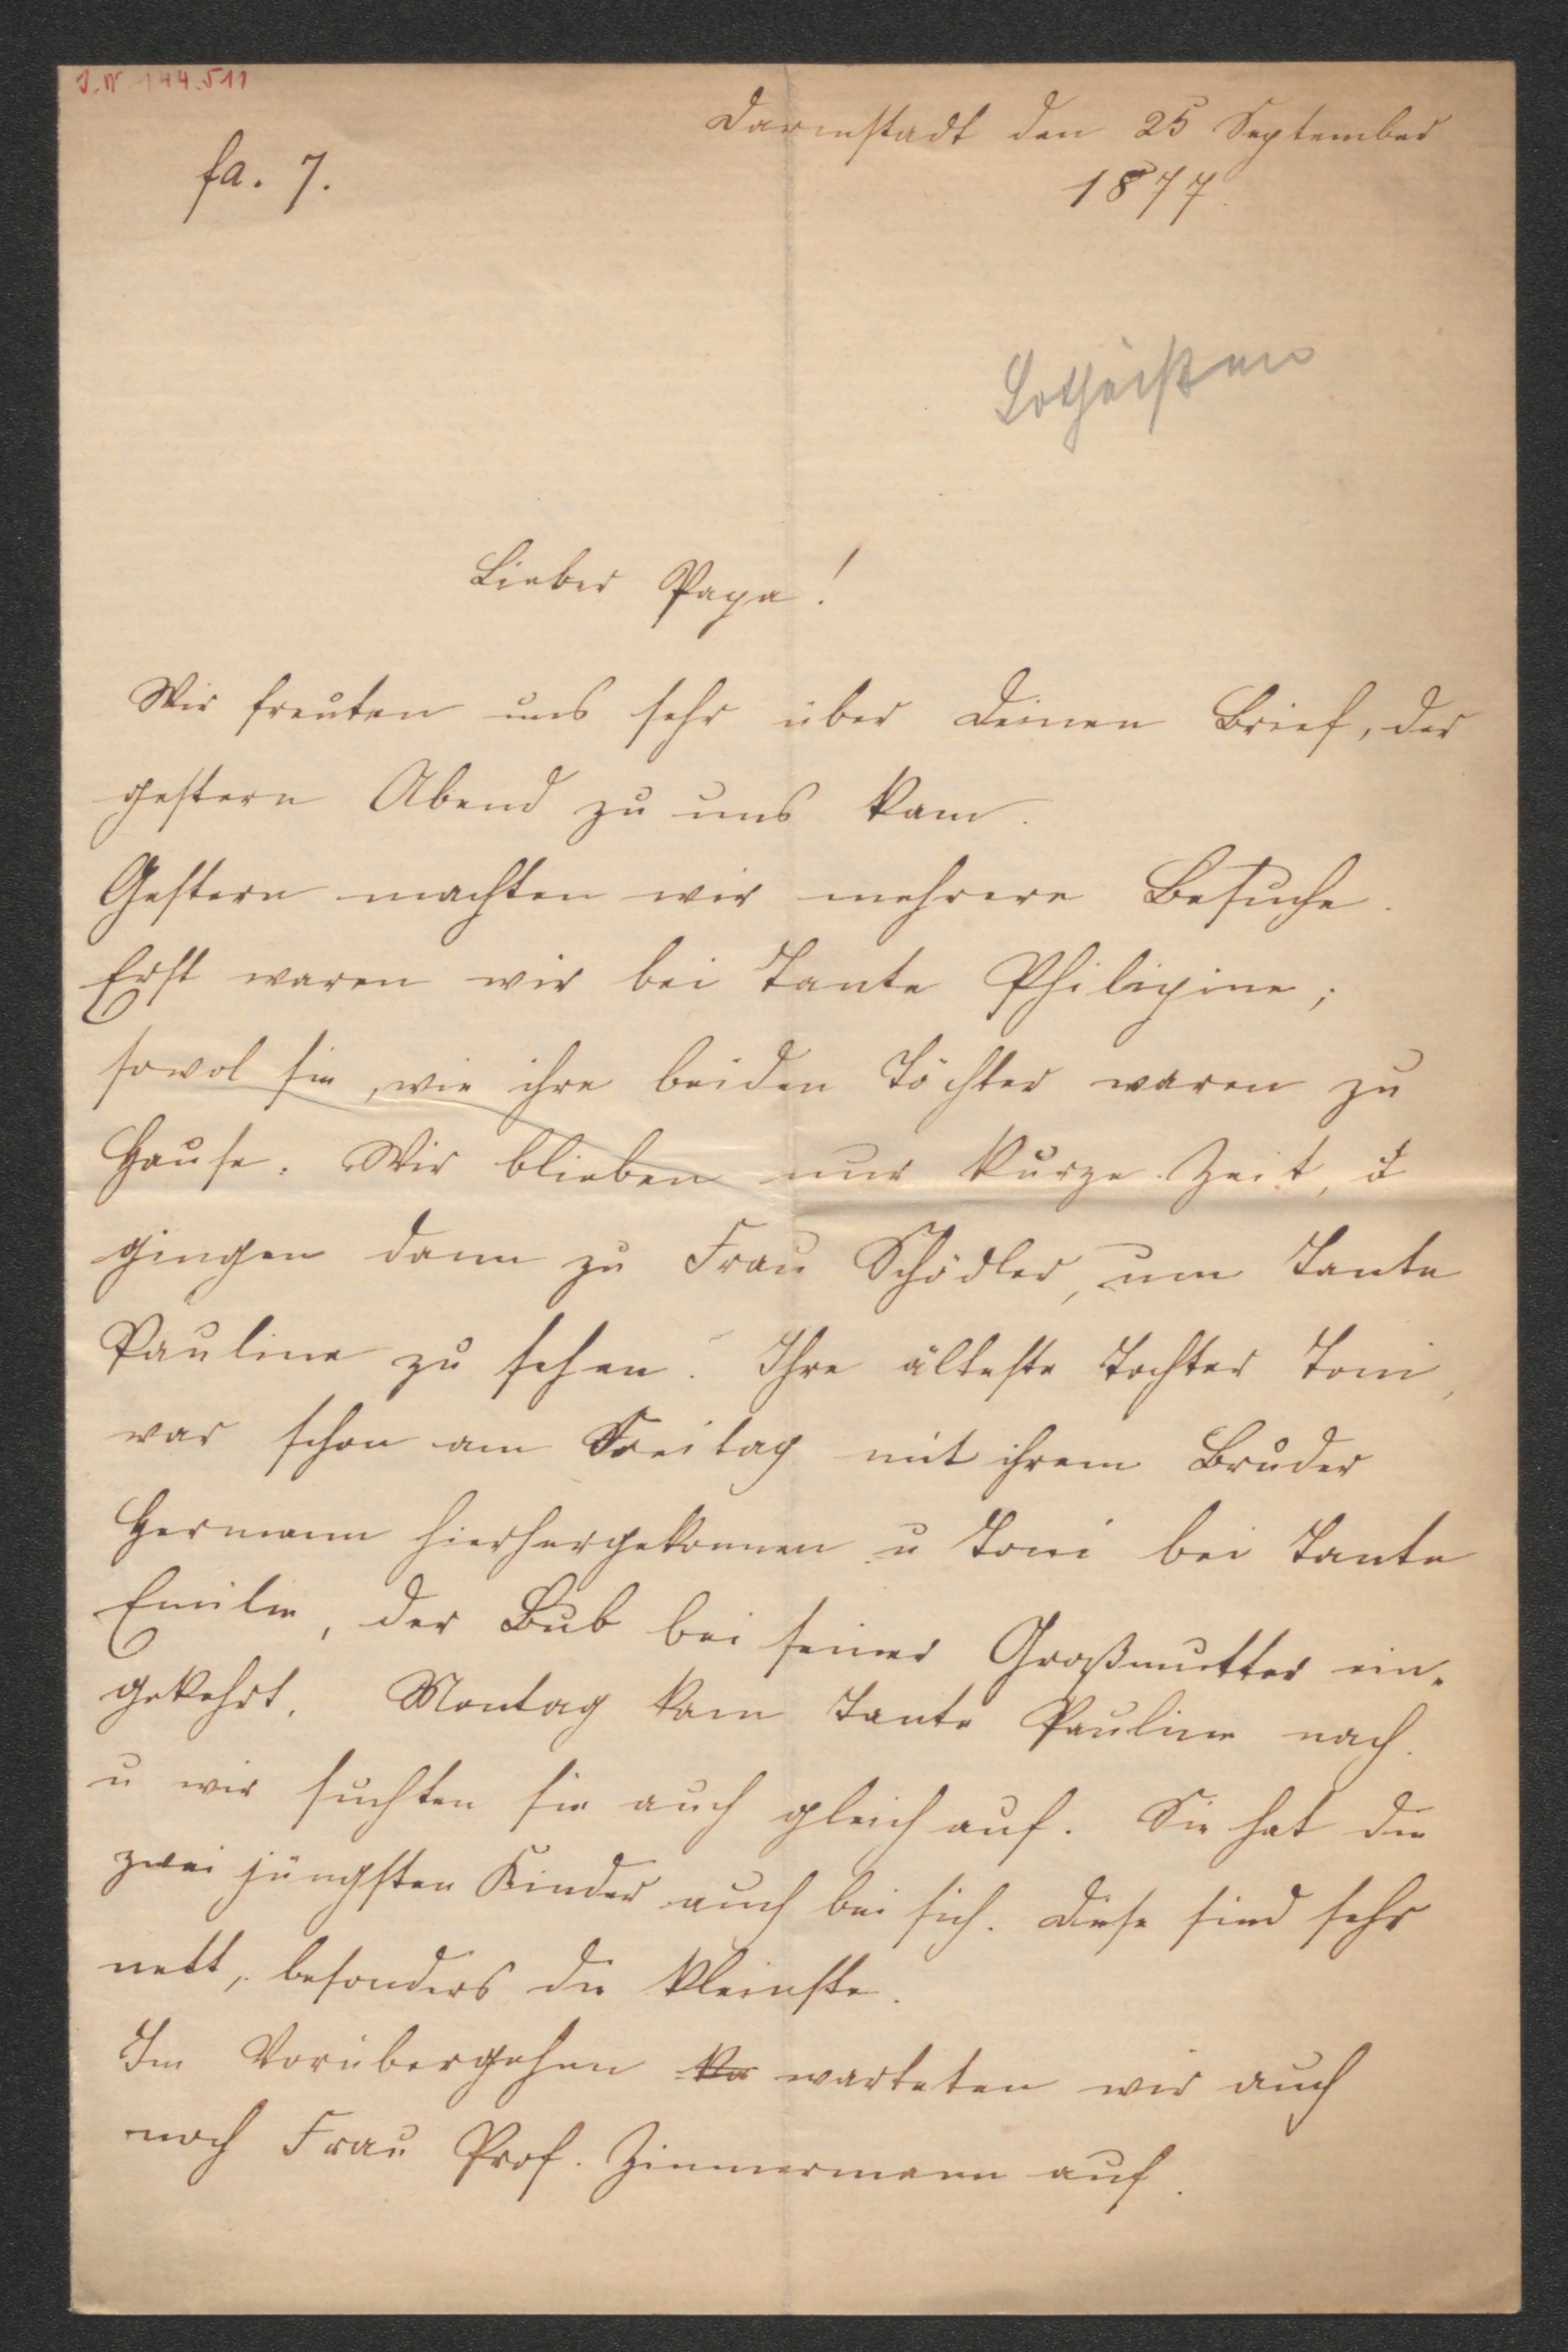 J.N. 144.511
Darmstadt den 25 September
fa. 7.
1877.
Lotheißen
Lieber Papa!
Wir freuten uns sehr über Deinen Brief, der
gestern Abend zu uns kam.
Gestern machten wir mehrere Besuche.
Erst waren wir bei Tante Philipine;
sowol sie, wie ihre beiden Töchter waren zu
Hause. Wir blieben nur kurze Zeit, u
gingen dann zu Frau Schödler, um Tante
Pauline zu sehen. Ihre älteste Tochter Toni,
war schon am Freitag mit ihrem Bruder
Hermann hierhergekommen u Toni bei Tante
Emilie, der Bub bei seiner Großmutter ein-
gekehrt. Montag kam Tante Pauline nach
u wir suchten sie auch gleich auf. Sie hat die
zwei jüngsten Kinder auch bei sich. Diese sind sehr
nett, besonders die kleinste.
Im Vorübergehen ka warteten wir auch
noch Frau Prof. Zimmermann auf.